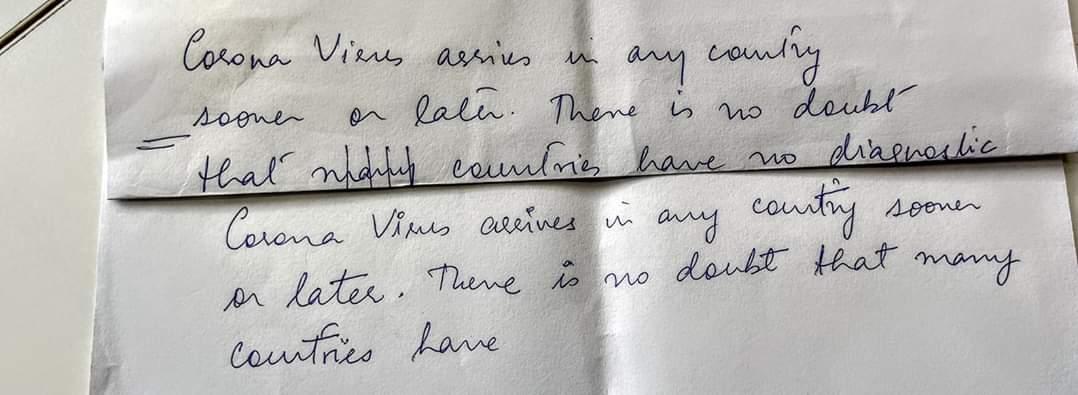 Corona Virus arrives in any country
sooner or later. There is no doubt
that countries have no diagnostic
Corona Virus arrives in any country sooner
or later. There is no doubt that many
countries have